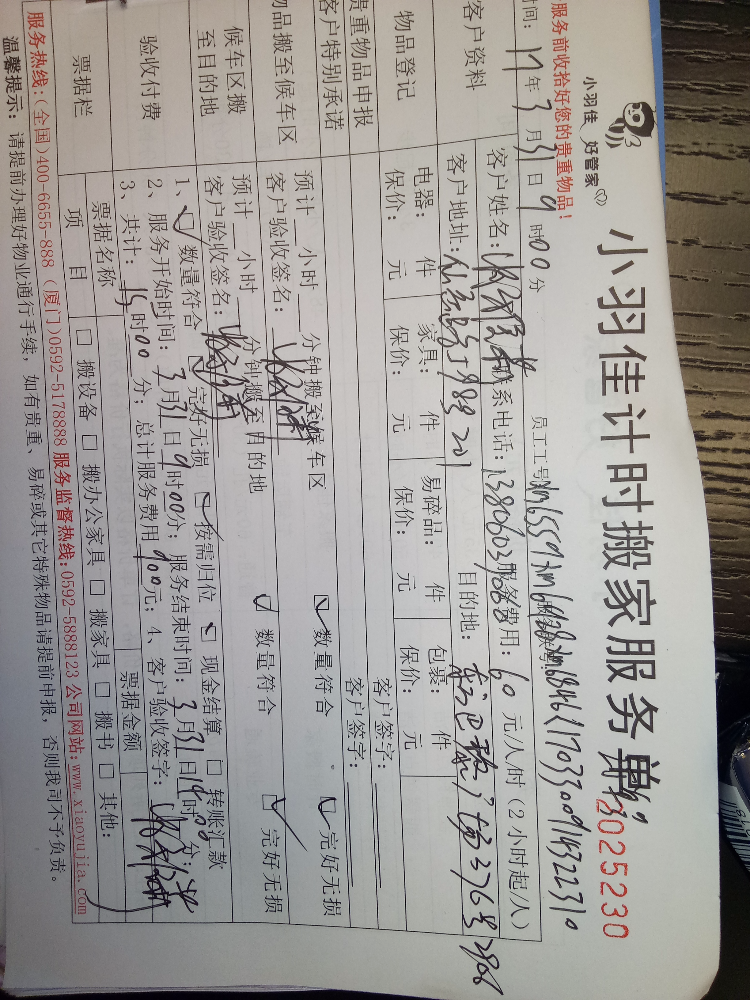 小羽佳 好管家
小羽佳计时搬家服务单
3025230
服务前收拾好您的贵重物品!
时间: 17年3月31日9时00分
员工工号
客户资料
客户姓名:
联系电话:
服务费用: 60元/人/时(2小时起/人)
客户地址:
目的地:
物品登记
电器: 件 家具: 件 易碎品: 件 包裹: 件
保价: 元 保价: 元 保价: 元 保价: 元
贵重物品申报
客户签字:
客户特别承诺
客户签字:
物品搬至候车区
预计 小时 分钟搬至候车区
客户验收签名:
数量符合 完好无损
候车区搬至目的地
预计 小时 分钟搬至目的地
客户验收签名:
数量符合 完好无损
验收付费
1、数量符合 完好无损 按需归位 现金结算 转账汇款
2、服务开始时间: 3月31日9时00分; 服务结束时间: 3月31日 时 分;
3、共计: 15时00分; 总计服务费用900元; 4、客户验收签字:
票据栏
票据名称
票据金额
项目
□ 搬设备 □ 搬办公家具 □ 搬家具 □ 搬书 □ 其他:
服务热线:(全国)400-6655-888 (厦门)0592-5178888 服务监督热线:0592-5888123 公司网站:www.xiaoyujia.com
温馨提示: 请提前办理好物业通行手续,如有贵重、易碎或其它特殊物品请提前申报,否则我司不予负责。